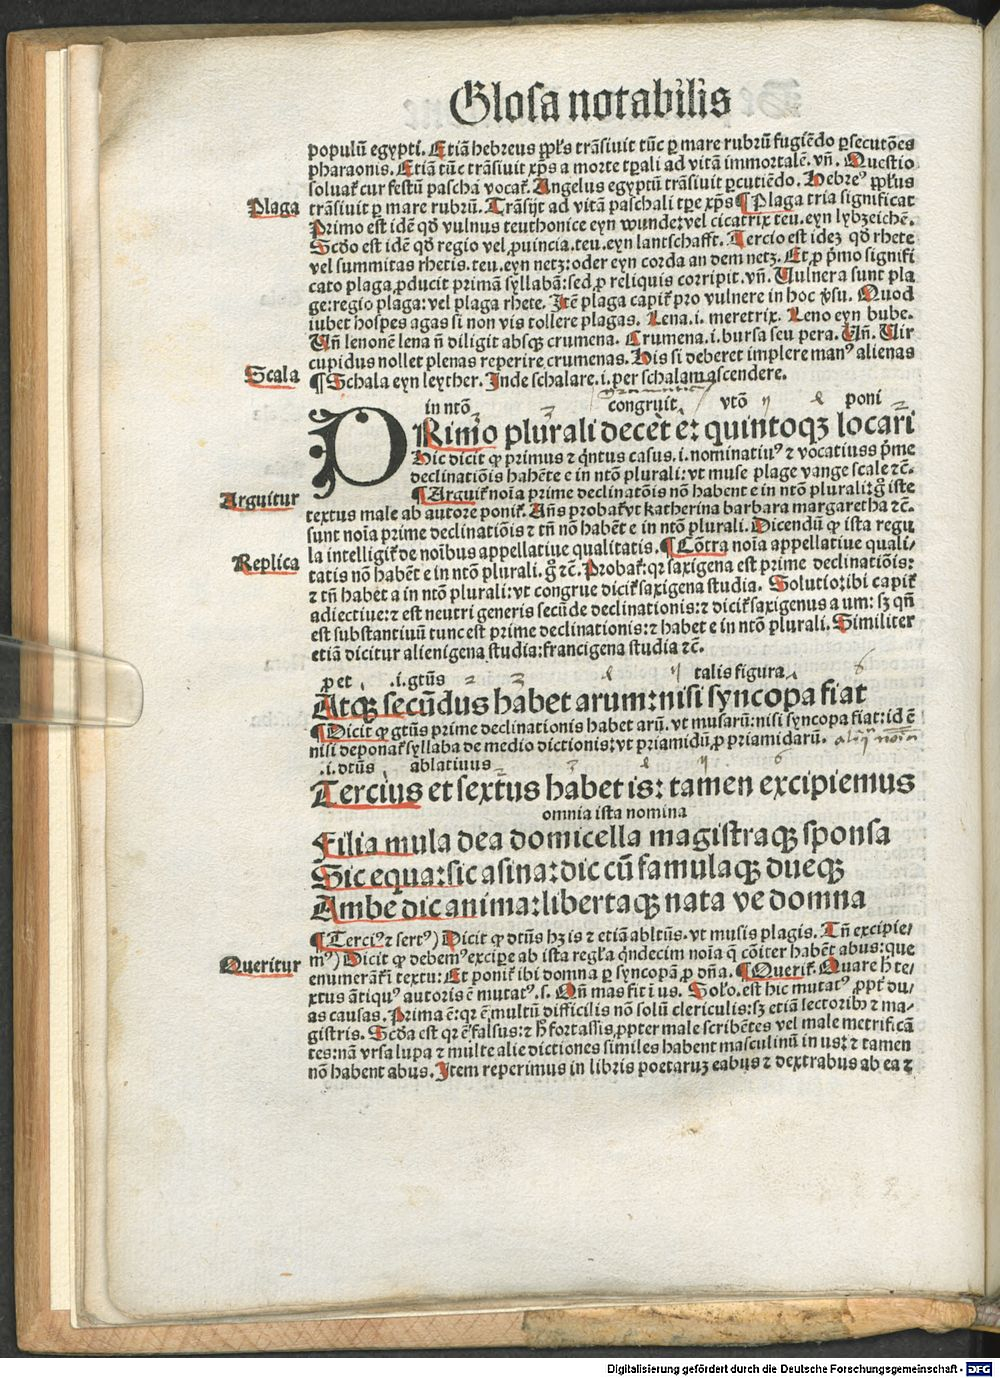 Glosa notabilis
populū egypti. Etiā hebreus pp̄ls trāsiuit tūc ꝑ mare rubrū fugiēdo ꝑsecutōes
pharaonis. Etiā tūc trāsiuit xp̄s a morte tꝑali ad vitā immortalē. vn̄. Questio
soluat᷑ cur festū pascha vocat᷑. Angelus egyptū trāsiuit ꝑcutiēdo. Hebreꝰ pp̄lus
Plaga
trāsiuit ꝑ mare rubrū. Trāsijt ad vitā paschali tꝑe xp̄s ¶ Plaga tria significat
Primo est idē qd̄ vulnus teuthonice eyn wunde: vel cicatrix teu. eyn lybzeichē.
Scd̄o est idē qd̄ regio vel ꝓuincia. teu. eyn lantschafft. Tercio est idez qd̄ rhete
vel summitas rhetis. teu. eyn netz: oder eyn corda an dem netz. Et ꝓ p̄mo signifi
cato plaga ꝓducit primā syllabā: sed ꝓ reliquis corripit. vn̄. Vulnera sunt pla
ge: regio plaga: vel plaga rhete. Itē plaga capit᷑ pro vulnere in hoc v̄su. Quod
iubet hospes agas si non vis tollere plagas. Lena .i. meretrix. Leno eyn bube.
Vn̄ lenonē lena n̄ diligit absqꝫ crumena. Crumena .i. bursa seu pera. Vn̄. Vir
cupidus nollet plenas reperire crumenas. His si deberet implere manꝰ alienas
Scala
¶ Schala eyn leyther. Inde schalare .i. per schalam ascendere.
in ntō congruit vtō poni
PRimo plurali decet e: quintoqꝫ locari
Hic dicit ꝙ primus ⁊ q̄ntus casus .i. nominatiuꝰ ⁊ vocatiuss p̄me
declinatiōis habēte e in ntō plurali: vt muse plage vange scale ⁊c̄.
Arguitur
¶ Arguit᷑ noīa prime declinatōis nō habent e in ntō plurali: gͦ iste
textus male ab autore ponit᷑. Ān̄s probat᷑ vt katherina barbara margaretha ⁊c̄.
sunt noīa prime declinatiōis ⁊ tn̄ nō habēt e in ntō plurali. Dicendū ꝙ ista regu
Replica
la intelligit᷑ de noībus appellatiue qualitatis. ¶ Cōtra noīa appellatiue quali/
tatis nō habēt e in ntō plurali. gͦ ⁊c̄. Probat᷑: qꝛ saxigena est prime declinatiōis:
⁊ tn̄ habet a in ntō plurali: vt congrue dicit᷑ saxigena studia. Solutio: ibi capit᷑
adiectiue: ⁊ est neutri generis secūde declinationis: ⁊ dicit᷑ saxigenus a um: sꝫ qn̄
est substantiuū tunc est prime declinationis: ⁊ habet e in ntō plurali. Similiter
etiā dicitur alienigena studia: francigena studia ⁊c̄.
ꝓ et .i. gtūs talis figura
Atqꝫ secūdus habet arum: nisi syncopa fiat
¶ Dicit ꝙ gtūs prime declinationis habet arū. vt musarū: nisi syncopa fiat: id ē
nisi deponat᷑ syllaba de medio dictionis: vt priamidū ꝓ priamidarū.
.i. dtūs ablatiuus
Tercius et sextus habet is: tamen excipiemus
omnia ista nomina
Filia mula dea domicella magistraqꝫ sponsa
Sic equa: sic asina: dic cū famulaqꝫ dueqꝫ
Ambe dic anima: libertaqꝫ nata ve domna
¶ Terciꝰ ⁊ sextꝰ) Dicit ꝙ dtūs hꝫ is ⁊ etiā abltūs. vt musis plagis. Tn̄ excipie/
Queritur
mꝰ) Dicit ꝙ debemꝰ excipere ab ista regl̄a q̄ndecim noīa q̄ cōiter habēt abus: que
enumerāt᷑ ī textu: Et ponit᷑ ibi domna ꝑ syncopā ꝓ dn̄a. ¶ Querit᷑. Quare h̄ te/
xtus ātiqꝰ autoris ē mutatꝰ .s. Qn̄ mas fit ī us. Sol̄o. est hic mutatꝰ ꝓpt᷑ du/
as causas. Prima ē: qꝛ ē multū difficilis nō solū clericulis: sꝫ etiā lectoribꝫ ⁊ ma/
gistris. Scd̄a est qꝛ ē falsus: ⁊ h̄ fortassis ꝓpter male scribētes vel male metrificā
tes: nā vrsa lupa ⁊ multe alie dictiones similes habent masculinū in us: ⁊ tamen
nō habent abus. Item reperimus in libris poetarum eabus ⁊ dextrabus ab ea ⁊
Digitalisierung gefördert durch die Deutsche Forschungsgemeinschaft - DFG